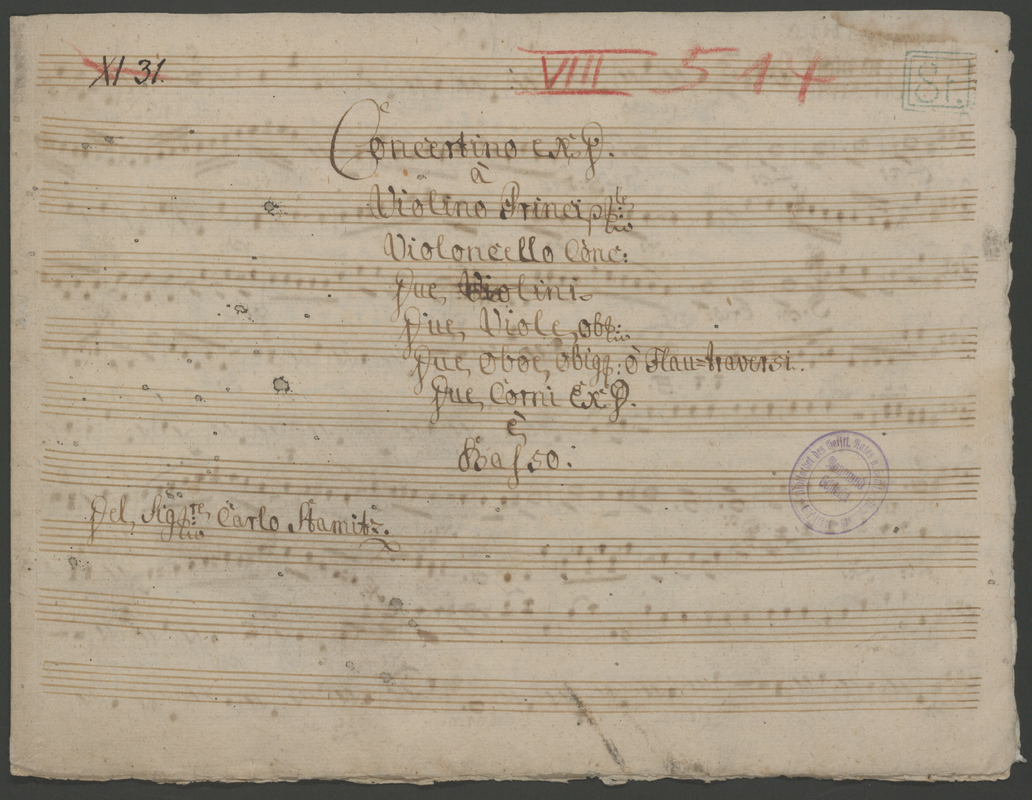 XI 31.
VIIII 5 14
81.
Concertino ex D.
à
Violino Principle
Violoncello Conc:
Due, Violini.
Due, Viole, obl:
Due, Oboe, obigg: ò Flau=traversi.
Due, Corni Ex D.
è
Basso:
Del, Sigre, Carlo Stamitz.